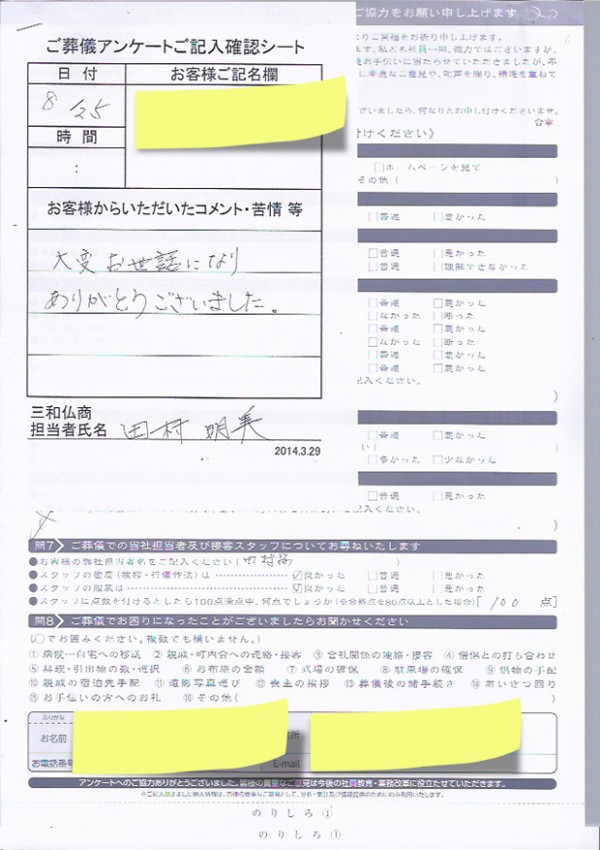 ご協力をお願い申し上げます
ご葬儀アンケートご記入確認シート
日付
お客様ご記名欄
8/25
時間
:
お客様からいただいたコメント・苦情 等
大変お世話になり
ありがとうございました。
三和仏商
担当者氏名 田村 明美
2014.3.29
合掌
付けください》
□ホームページを見て
その他(
□普通 □悪かった
□普通 □悪かった
□普通 □理解できなかった
□普通 □悪かった
□なかった □断った
□普通 □悪かった
□なかった □断った
□普通 □悪かった
□普通 □悪かった
記入ください。
□普通 □悪かった
□多かった □少なかった
□普通 □悪かった
問7 ご葬儀での当社担当者及び接客スタッフについてお尋ねいたします
●お客様の弊社担当者名をご記入ください(田村様 )
●スタッフの態度(挨拶・行儀作法)は ☑良かった □普通 □悪かった
●スタッフの服装は ☑良かった □普通 □悪かった
●スタッフに点数を付けるとしたら100点満点中、何点でしょうか(※合格点を80点以上とした場合)[ 100 点]
問8 ご葬儀でお困りになったことがございましたらお聞かせください
(○でお囲みください。複数でも構いません。)
①病院…自宅への移送 ②親戚・町内会への連絡・接客 ③会社関係の連絡・接客 ④僧侶との打ち合わせ
⑤料理・引出物の数・選択 ⑥お布施の金額 ⑦式場の確保 ⑧駐車場の確保 ⑨供物の手配
⑩親戚の宿泊先手配 ⑪遺影写真選び ⑫喪主の挨拶 ⑬葬儀後の諸手続き ⑭あいさつ回り
⑮お手伝いの方へのお礼 ⑯その他( )
ふりがな
お名前
お電話番号
E-mail
アンケートへのご協力ありがとうございました。お客様の貴重なご意見は今後の社員教育・業務改革に役立たせていただきます。
のりしろ④
のりしろ①